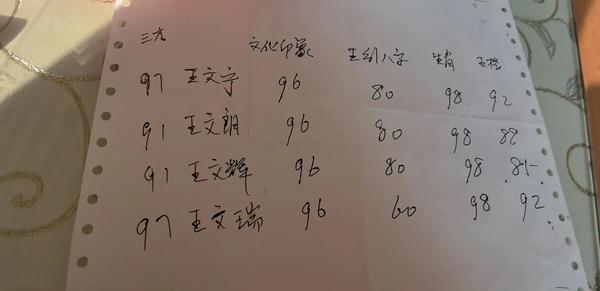 三才 文化印象 五行八字 生肖 五格
97 王文宁 96 80 98 92
91 王文朗 96 80 98 88
91 王文辉 96 80 98 85
97 王文瑞 96 60 98 92